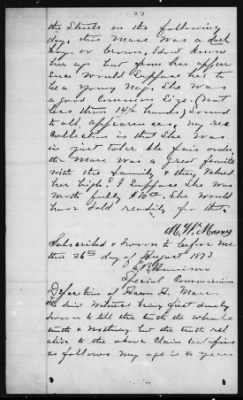 23
the Streets on the following
day, this Mare was a dark
bay or brown, I dont know
her age but from her appear
ance would Suppose her to
be a young Nag. She was
a good Common Size. (Not
less than 14½ hands.) Sound
to all appearances, my rec
ollection is that She was
in just tolerable fair order,
the Mare was a great favorite
with the family & they Valued
her high. I suppose She was
worth fully $ She would
have Sold readily for that.
M. W.
Subscribed & Sworn to before me
this 26th day of August 1873
Special Commissioner
Deposition of
the Witness being first duly
Sworn to tell the truth the whole
truth & Nothing but the truth rel
ative to the above Claim testifies
as follows My age is 41 years